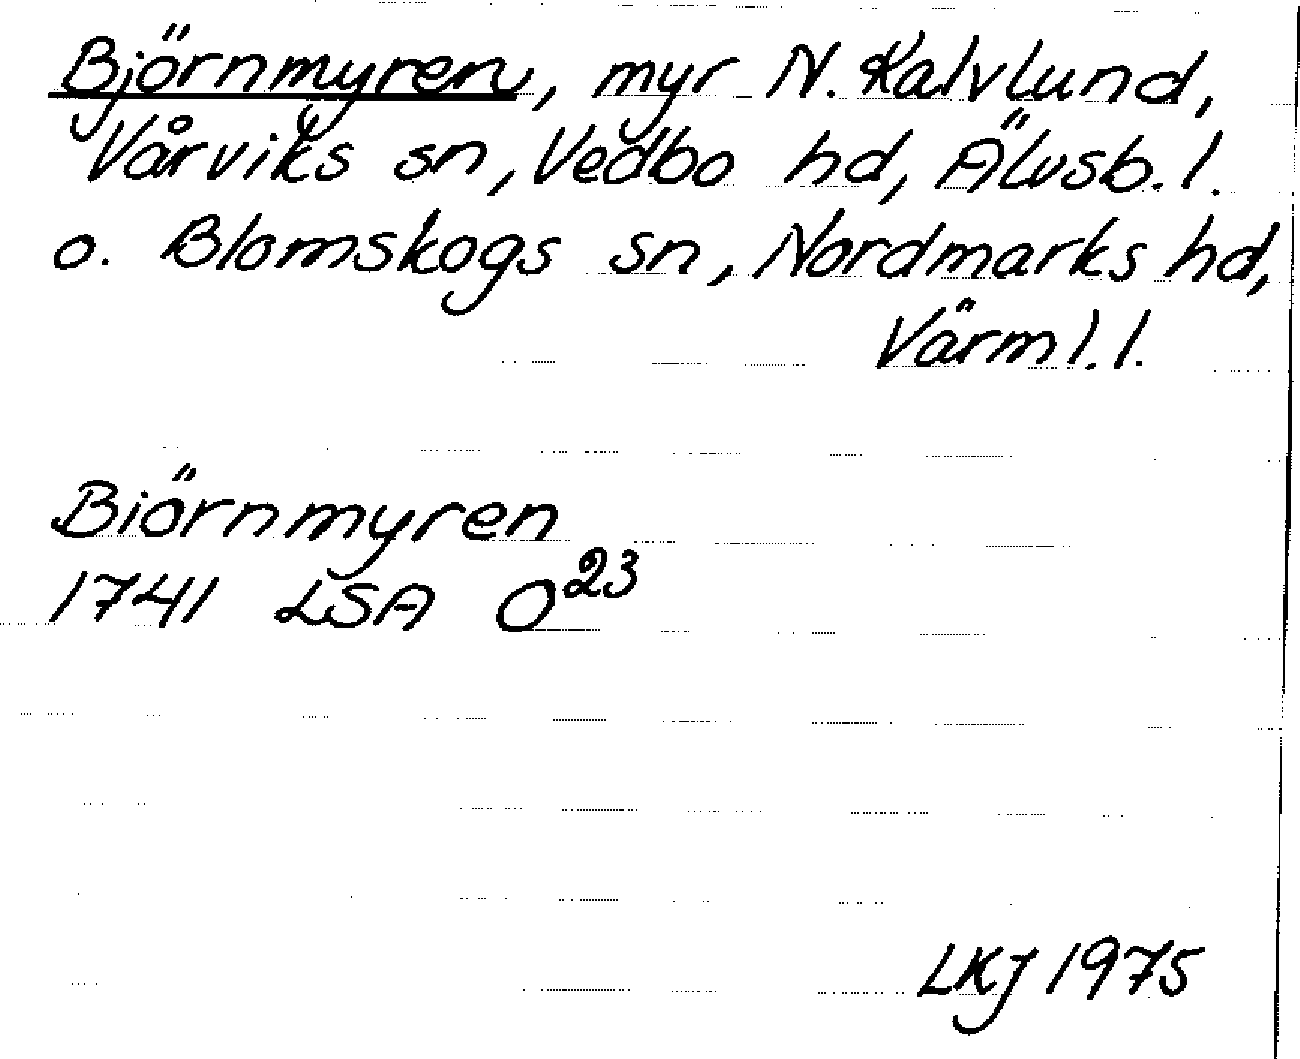 Björnmyren, myr N. Kalvlund,
Vårviks sn, Vedbo hd, Älvsb. l.
o. Blomskogs sn, Nordmarks hd,
Värml. l.
Biörnmyren
1741 LSA O23
LKJ 1975